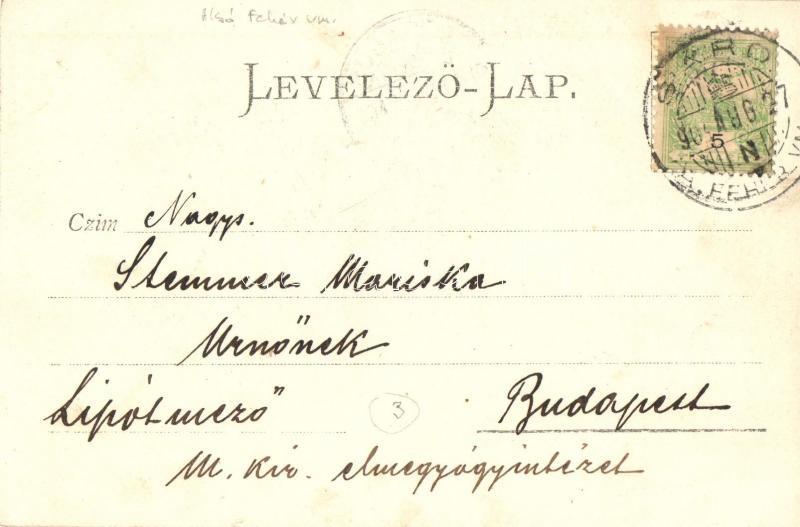 Alsó Fehér vm.
LEVELEZŐ-LAP.
5
A. FEHÉR VM
Czim Nagys.
Stemmer Mariska
Urnőnek
Lipótmező 3 Budapest
M. kir. elmegyógyintézet